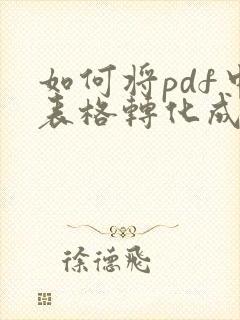 如何将pdf中
表格轉化成
徐德飛